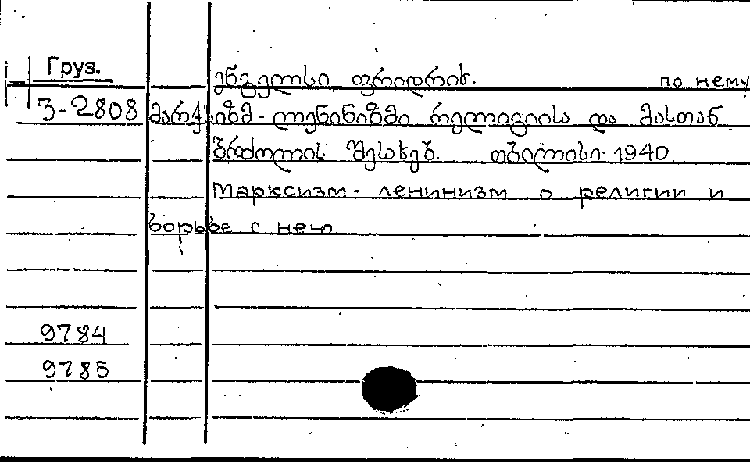 Груз. ენგელსი ფრიდრიხ. по нему
3-2808 მარქსიზმ-ლენინიზმი რელიგიის და მასთან
ბრძოლის შესახებ. თბილისი. 1940
Марксизм-ленинизм о религии и
борьбе с нею
9784
9785